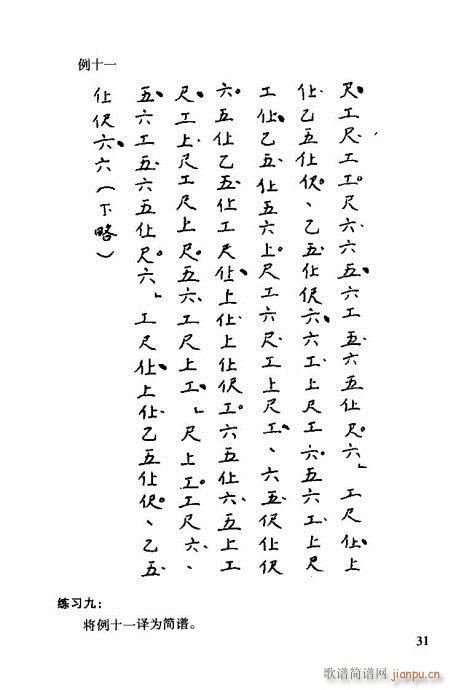 例十一
尺。工尺、工工。尺六、六五、六工五、六五仩尺。六」工尺仩、上
仩、乙五仩伬。、乙五、仩伬六、六工上尺工六。五六工、上尺
工仩、乙五、仩五六上。尺工六尺、工上尺工、、六五、伬仩伬
六。五仩乙五、仩工尺仩、上仩、上仩伬工。六五仩六、五上工
尺、工上、尺工尺上尺。五六、工尺上工、」尺上工。工尺六、、
五、六工五、六五仩尺。六」工尺仩、上仩、乙五仩伬。、乙五
仩伬六、六（下略）
练习九：
将例十一译为简谱。
31
歌谱简谱网
jianpu.cn